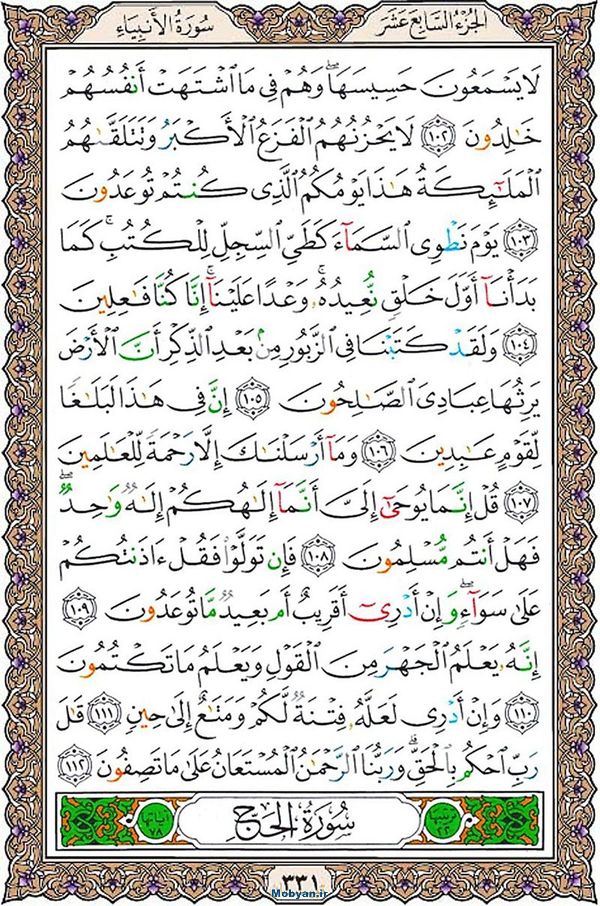 الجزء السابع عشر
سورة الأنبياء
لَا يَسْمَعُونَ حَسِيسَهَا ۖ وَهُمْ فِى مَا ٱشْتَهَتْ أَنفُسُهُمْ
خَـٰلِدُونَ ١٠٢ لَا يَحْزُنُهُمُ ٱلْفَزَعُ ٱلْأَكْبَرُ وَتَتَلَقَّىٰهُمُ
ٱلْمَلَـٰٓئِكَةُ هَـٰذَا يَوْمُكُمُ ٱلَّذِى كُنتُمْ تُوعَدُونَ
١٠٣ يَوْمَ نَطْوِى ٱلسَّمَآءَ كَطَىِّ ٱلسِّجِلِّ لِلْكُتُبِ ۚ كَمَا
بَدَأْنَآ أَوَّلَ خَلْقٍ نُّعِيدُهُۥ ۚ وَعْدًا عَلَيْنَآ ۚ إِنَّا كُنَّا فَـٰعِلِينَ
١٠٤ وَلَقَدْ كَتَبْنَا فِى ٱلزَّبُورِ مِنۢ بَعْدِ ٱلذِّكْرِ أَنَّ ٱلْأَرْضَ
يَرِثُهَا عِبَادِىَ ٱلصَّـٰلِحُونَ ١٠٥ إِنَّ فِى هَـٰذَا لَبَلَـٰغًا
لِّقَوْمٍ عَـٰبِدِينَ ١٠٦ وَمَآ أَرْسَلْنَـٰكَ إِلَّا رَحْمَةً لِّلْعَـٰلَمِينَ
١٠٧ قُلْ إِنَّمَا يُوحَىٰٓ إِلَىَّ أَنَّمَآ إِلَـٰهُكُمْ إِلَـٰهٌ وَٰحِدٌ ۖ
فَهَلْ أَنتُم مُّسْلِمُونَ ١٠٨ فَإِن تَوَلَّوْا۟ فَقُلْ ءَاذَنتُكُمْ
عَلَىٰ سَوَآءٍ ۖ وَإِنْ أَدْرِىٓ أَقَرِيبٌ أَم بَعِيدٌ مَّا تُوعَدُونَ ١٠٩
إِنَّهُۥ يَعْلَمُ ٱلْجَهْرَ مِنَ ٱلْقَوْلِ وَيَعْلَمُ مَا تَكْتُمُونَ
١١٠ وَإِنْ أَدْرِى لَعَلَّهُۥ فِتْنَةٌ لَّكُمْ وَمَتَـٰعٌ إِلَىٰ حِينٍ ١١١ قَـٰلَ
رَبِّ ٱحْكُم بِٱلْحَقِّ ۗ وَرَبُّنَا ٱلرَّحْمَـٰنُ ٱلْمُسْتَعَانُ عَلَىٰ مَا تَصِفُونَ ١١٢
ترتيبها ٢٢
سورة الحج
آياتها ٧٨
٣٣١
Mobyan.ir